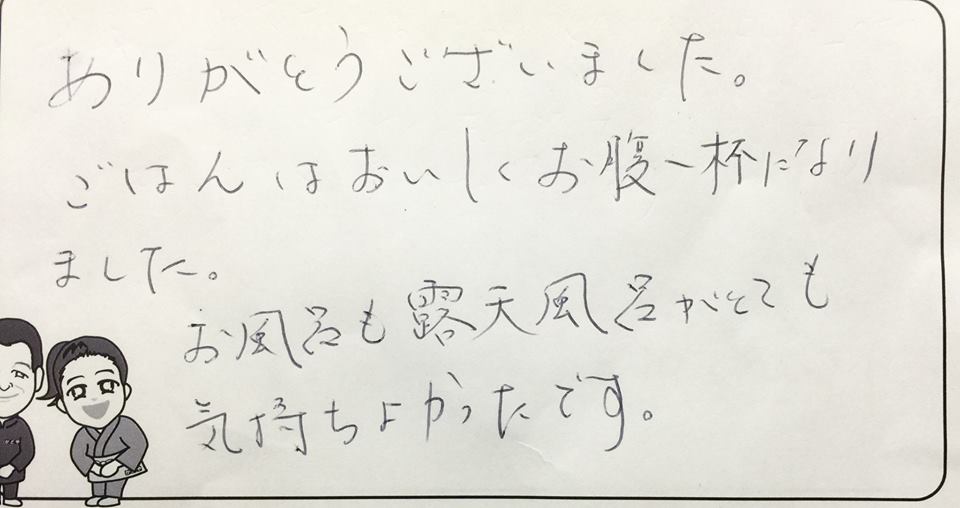 ありがとうございました。
ごはんはおいしくお腹一杯になり
ました。
お風呂も露天風呂がとても
気持ちよかったです。